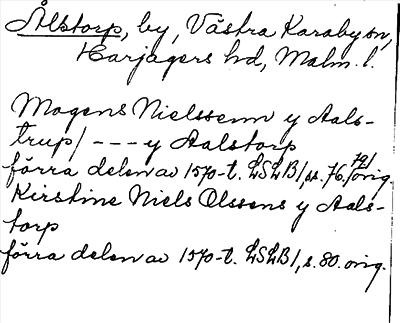 Ålstorp, by, Västra Karaby sn,
Harjagers hd, Malm. l.
Mogens Nielssenn y Aals-
trup/ --- y Aalstorp
förra delen av 1570-t. LSLB1, s. 76. /79/ orig.
Kirstine Niels Olssens y Aals-
torp
förra delen av 1570-t. LSLB1, s. 80. orig.